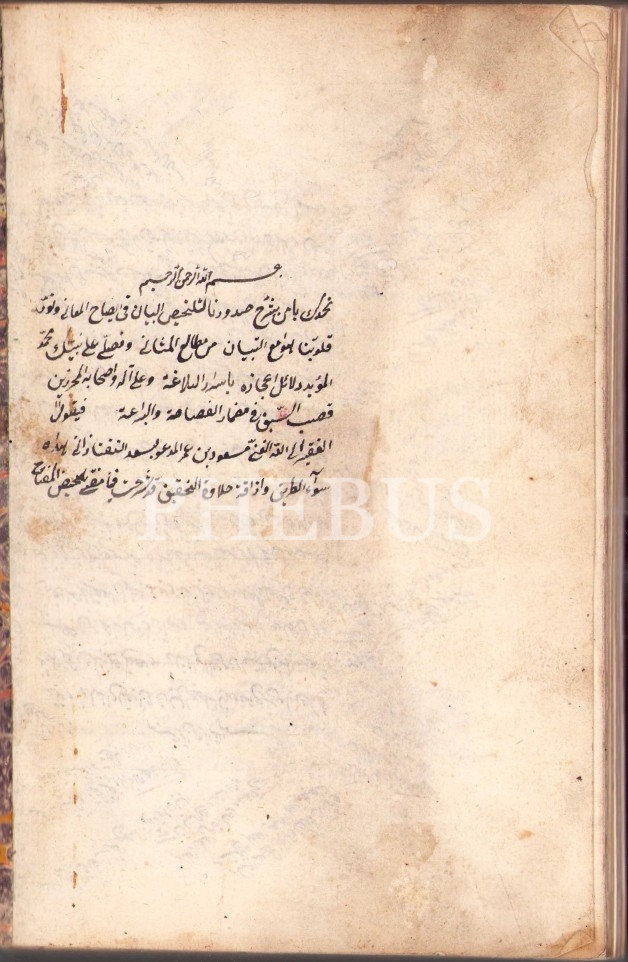 بسم الله الرحمن الرحيم
نحمدك يا من شرح صدورنا لتلخيص البيان في ايضاح المعاني ونور
قلوبنا بلوامع التبيان من مطالع المثاني ونصلي على نبيك محمد
المؤيد دلائل اعجازه باسرار البلاغة وعلى آله واصحابه المحرزين
قصب السبق في مضمار الفصاحة والبراعة فيقول
الفقير الى الله الغني مسعود بن عمر المدعو بسعد التفتازاني هداه
سواء الطريق واذاقه حلاوة التحقيق قد شرحت فيما مضى تلخيص المفتاح
THEBUS